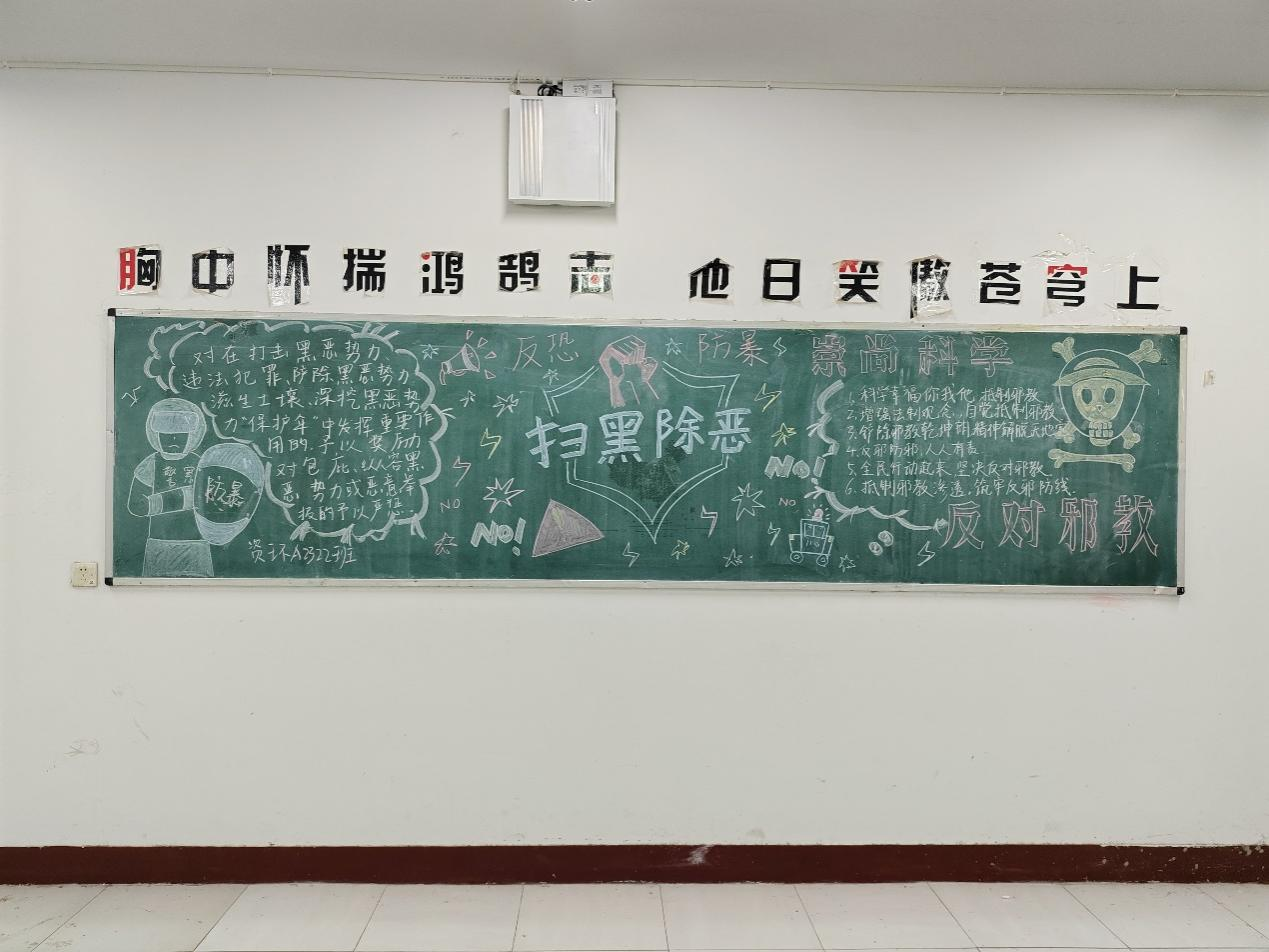 胸中怀揣鸿鹄志 他日笑傲苍穹上
对在打击黑恶势力、
违法犯罪、铲除黑恶势力
滋生土壤、深挖黑恶势
力“保护伞”中发挥重要作
用的,予以奖励
对包庇、纵容黑
恶势力或恶意举
报的予以严惩.
警察
防暴
资环A2322班
反恐
防暴
扫黑除恶
NO
NO!
NO!
NO
崇尚科学
1.科学幸福你我他,抵制邪教
2.增强法制观念,自觉抵制邪教
3.铲除邪教乾坤朗,精神
4.反邪防邪,人人有责
5.全民行动起来,坚决反对邪教
6.抵制邪教渗透,筑牢反邪防线
反对邪教